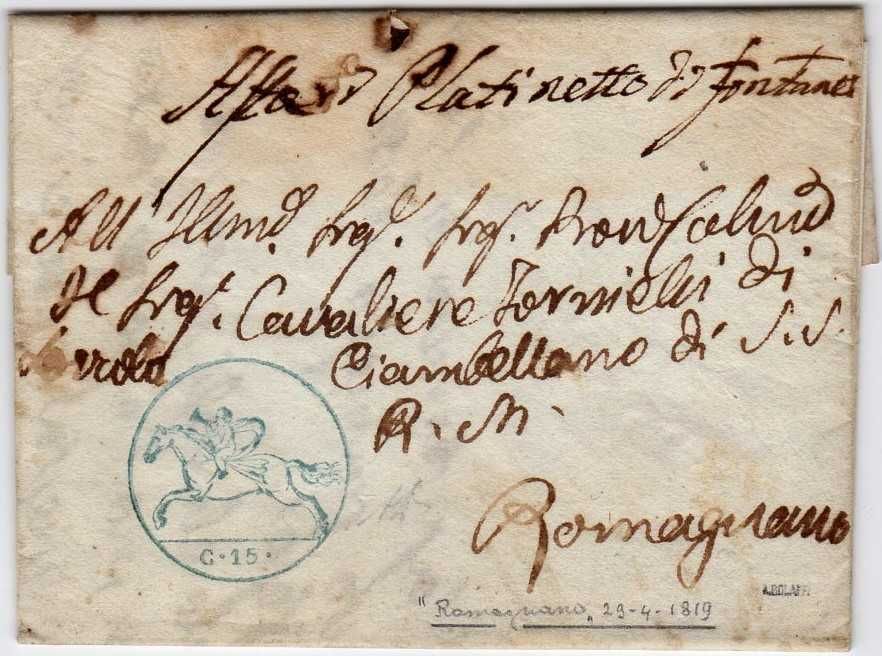 Platinetto di Fontanet
All' Illmo. Sigr. Sigr. Pron Colmo
Il Sigr. Cavaliere Tornielli di
Ciambellano di S. S.
R. M.
Romagnano
C · 15 ·
"Romagnano" 29-4-1819
A.BOLAFFI